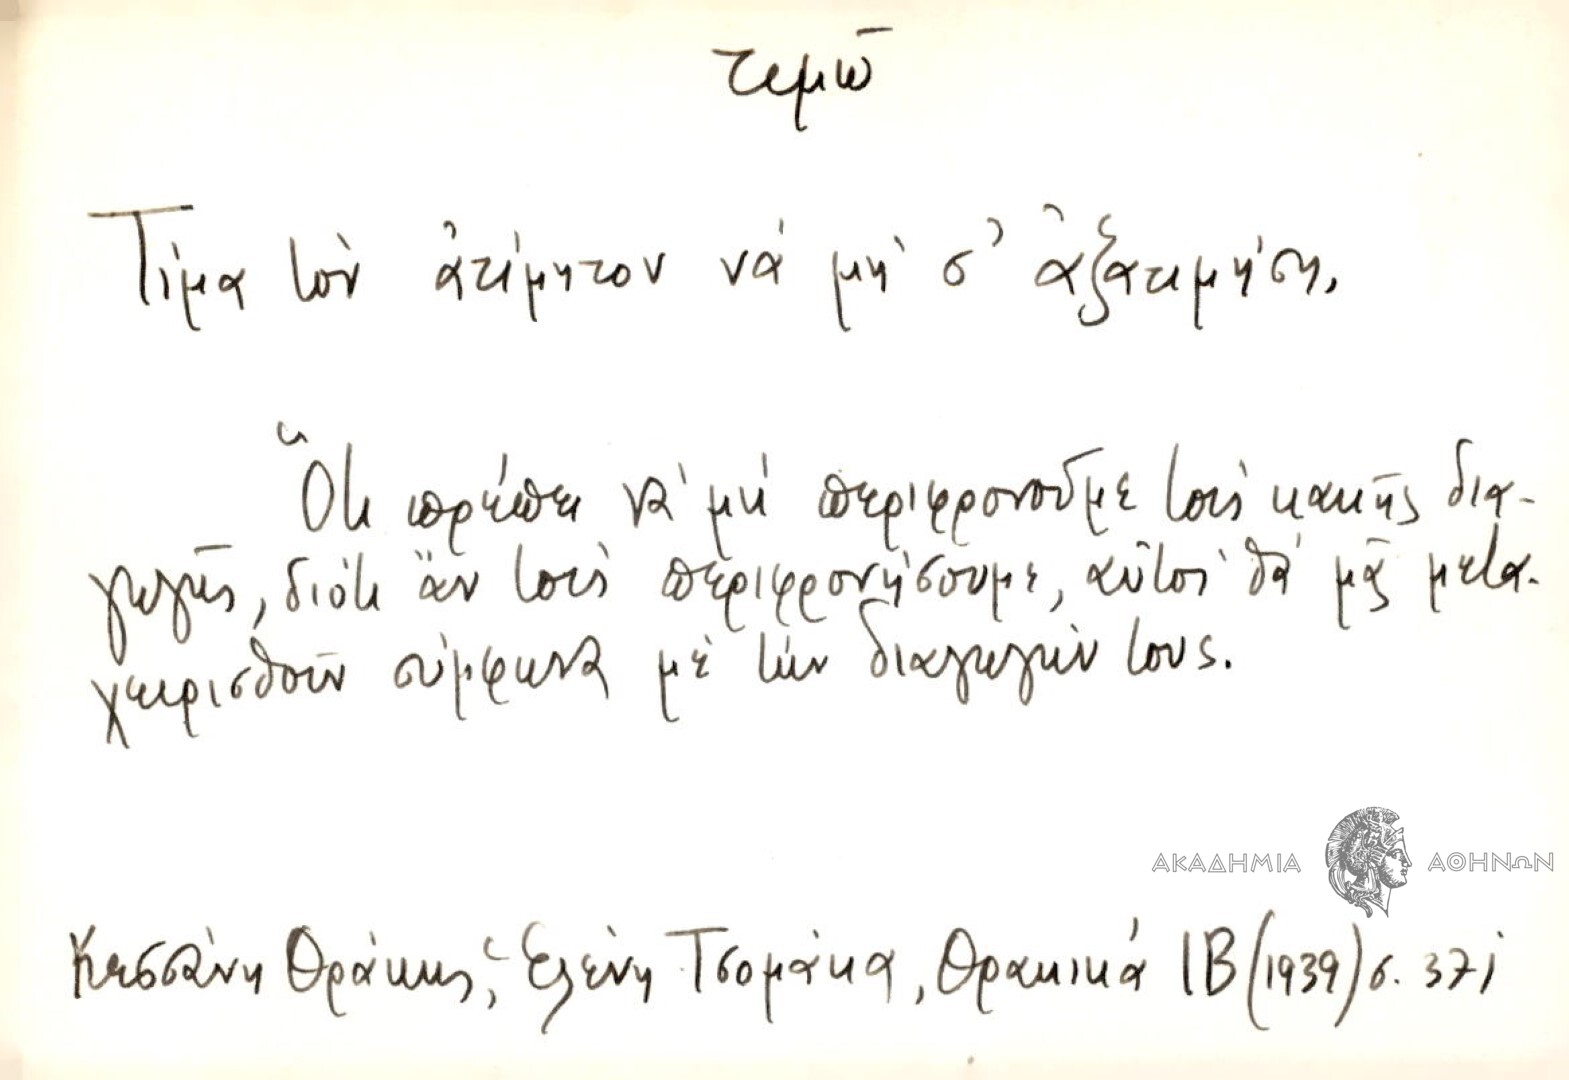 τιμῶ
Τίμα τὸν ἀτίμητον νά μή σ' ἀξατιμήση.
Ὅτι πρέπει νά μή περιφρονοῦμε τούς κακῆς δια-
γωγῆς, διότι ἄν τούς περιφρονήσουμε, αὐτοί θά μᾶς μετα-
χειρισθοῦν σύμφωνα μέ τήν διαγωγήν τους.
ΑΚΑΔΗΜΙΑ ΑΘΗΝΩΝ
Κεσσάνη Θράκης, Ἑλένη Τσομάκα, Θρακικά ΙΒ (1939) σ. 371